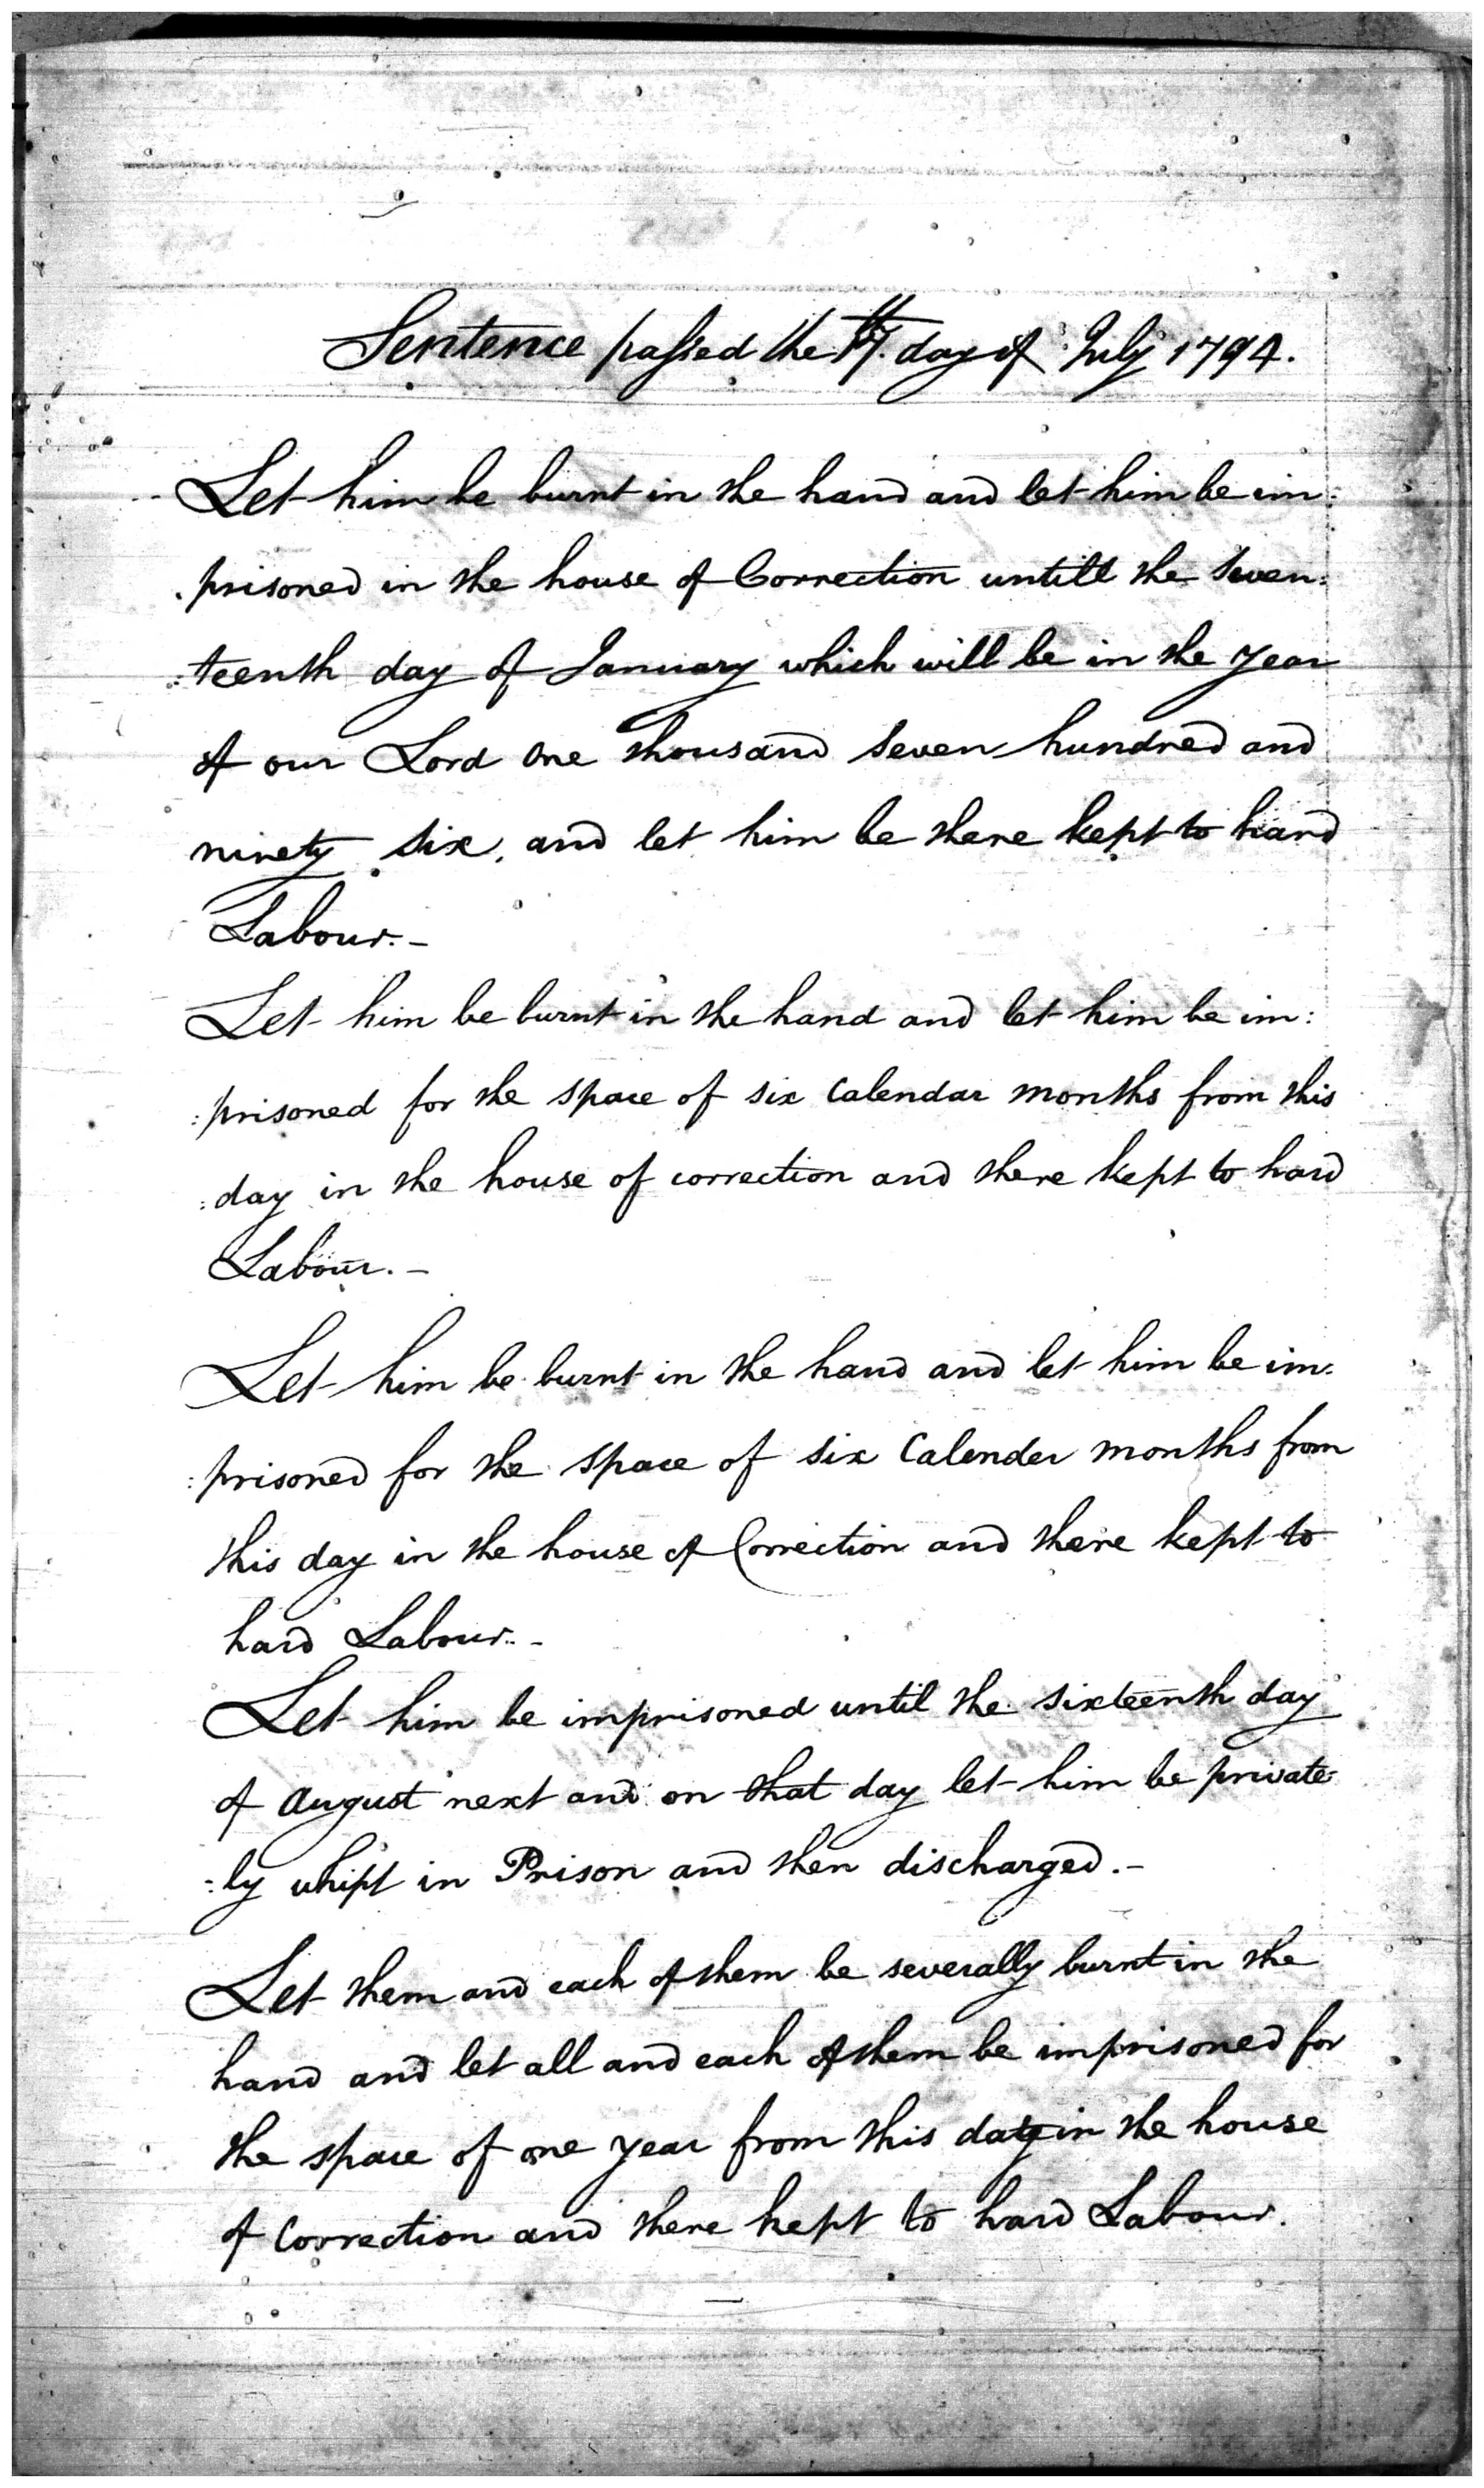 Sentence passed the 17th. day of July 1794.
Let him be burnt in the hand and let him be im:
:prisoned in the house of Correction untill the Seven:
:teenth day of January which will be in the year
of our Lord one thousand Seven hundred and
ninety six, and let him be there kept to hard
Labour.-
Let him be burnt in the hand and let him be im:
:prisoned for the space of six Calendar months from this
:day in the house of correction and there kept to hard
Labour.-
Let him be burnt in the hand and let him be im:
:prisoned for the space of six Calender months from
this day in the house of Correction and there kept to
hard Labour.-
Let him be imprisoned until the sixteenth day
of August next and on that day let him be private:
:ly whipt in Prison and then discharged.-
Let them and each of them be severally burnt in the
hand and let all and each of them be imprisoned for
the space of one year from this day in the house
of Correction and there kept to hard Labour.